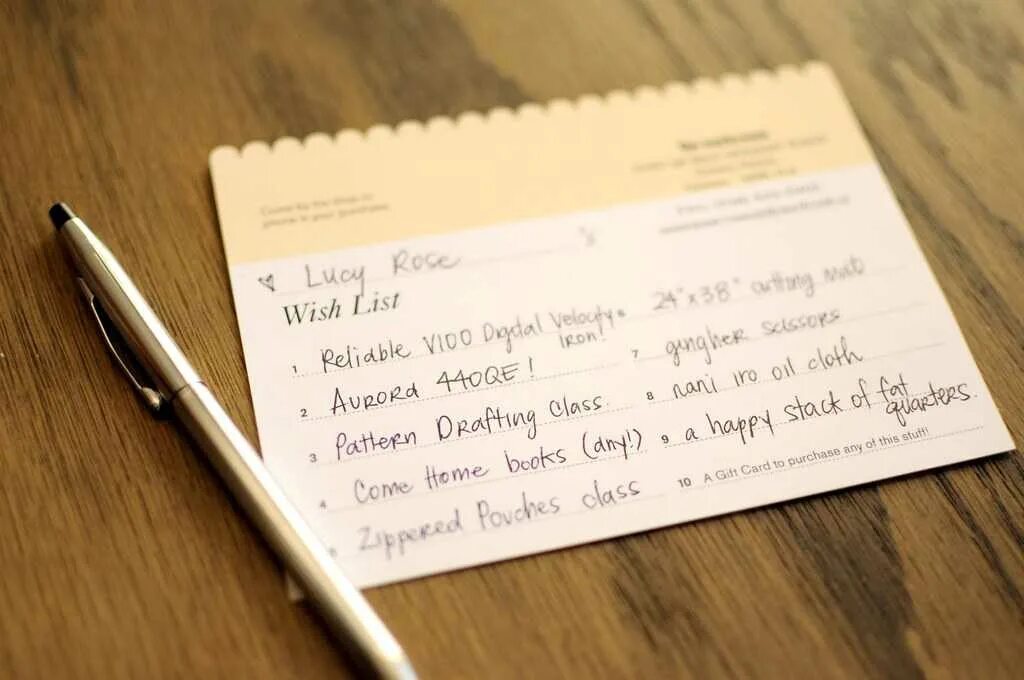 Lucy Rose
Wish List
1 Reliable V100 Digital Velocity
Iron!
2 Aurora 440QE!
3 Pattern Drafting Class.
4 Come Home books (any!)
Zippered Pouches class
24"x38" cutting mat
7 gingher scissors
8 nani iro oil cloth
9 a happy stack of fat
quarters.
10 A Gift Card to purchase any of this stuff!